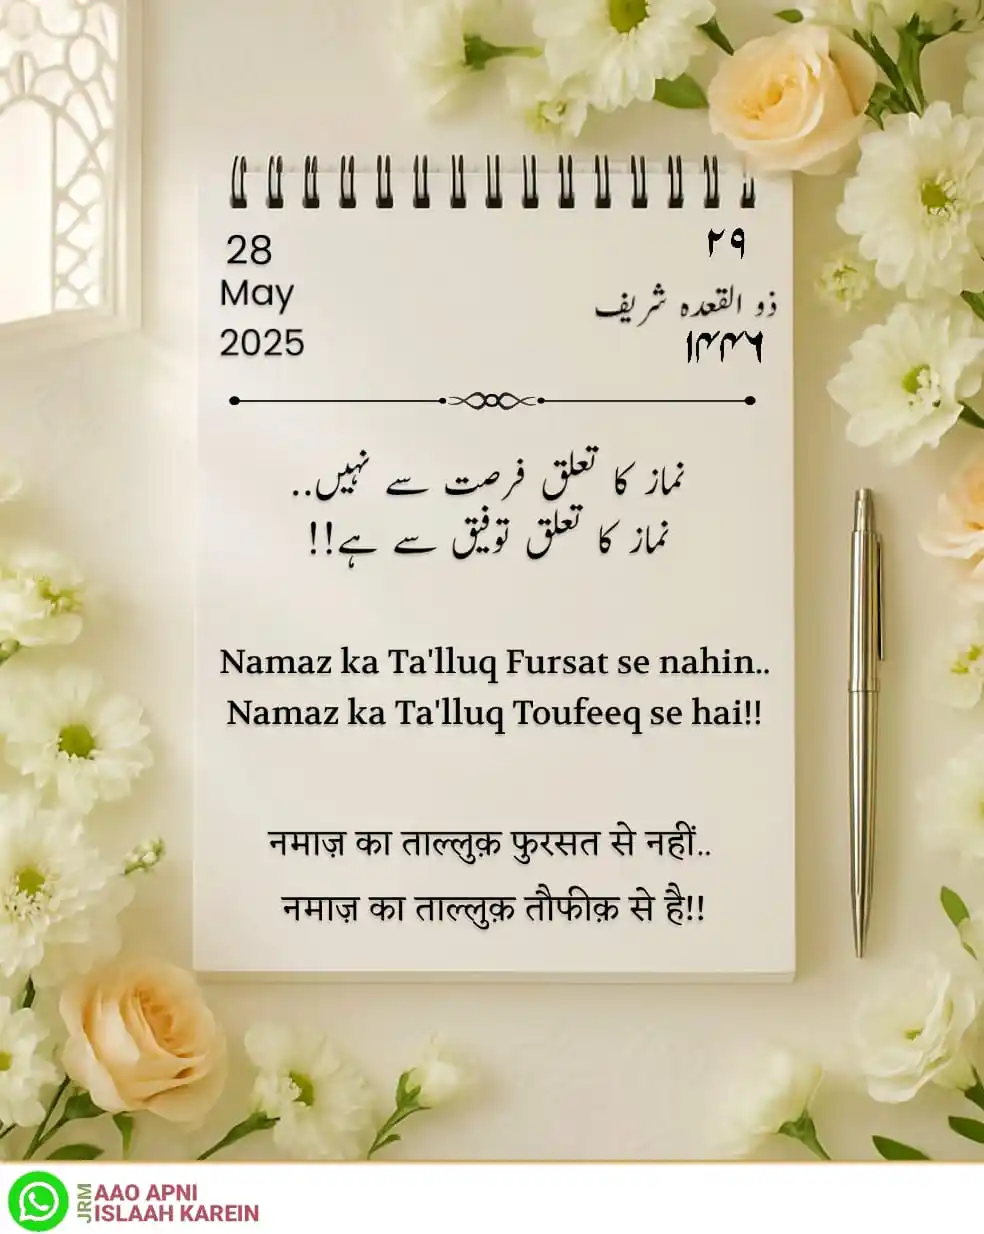 28
May
2025
۲۹
ذو القعدہ شریف
۱۴۴۶
نماز کا تعلق فرصت سے نہیں..
نماز کا تعلق توفیق سے ہے!!
Namaz ka Ta'lluq Fursat se nahin..
Namaz ka Ta'lluq Toufeeq se hai!!
नमाज़ का ताल्लुक़ फुरसत से नहीं..
नमाज़ का ताल्लुक़ तौफीक़ से है!!
JRM
AAO APNI
ISLAAH KAREIN